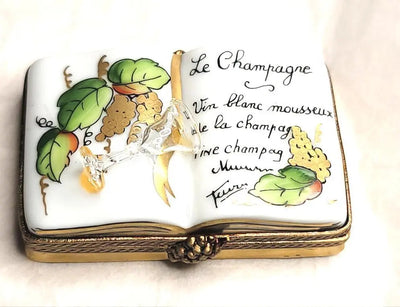 Le Champagne
Vin blanc mousseux
de la champag
champag